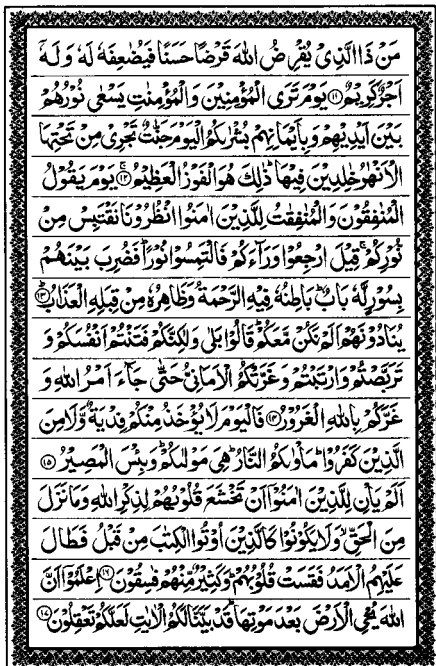 مَنۡ ذَا الَّذِىۡ يُقۡرِضُ اللّٰهَ قَرۡضًا حَسَنًا فَيُضٰعِفَهٗ لَهٗ وَلَهٗۤ
اَجۡرٌ كَرِيۡمٌ ۝۱۱ يَوۡمَ تَرَى الۡمُؤۡمِنِيۡنَ وَالۡمُؤۡمِنٰتِ يَسۡعٰى نُوۡرُهُمۡ
بَيۡنَ اَيۡدِيۡهِمۡ وَبِاَيۡمَانِهِمۡ بُشۡرٰٮكُمُ الۡيَوۡمَ جَنّٰتٌ تَجۡرِىۡ مِنۡ تَحۡتِهَا
الۡاَنۡهٰرُ خٰلِدِيۡنَ فِيۡهَا ؕ ذٰلِكَ هُوَ الۡفَوۡزُ الۡعَظِيۡمُ ۝۱۲ يَوۡمَ يَقُوۡلُ
الۡمُنٰفِقُوۡنَ وَالۡمُنٰفِقٰتُ لِلَّذِيۡنَ اٰمَنُوا انْظُرُوۡنَا نَقۡتَبِسۡ مِنۡ
نُّوۡرِكُمۡ ۚ قِيۡلَ ارۡجِعُوۡا وَرَآءَكُمۡ فَالۡتَمِسُوۡا نُوۡرًا ؕ فَضُرِبَ بَيۡنَهُمۡ
بِسُوۡرٍ لَّهٗ بَابٌ ؕ بَاطِنُهٗ فِيۡهِ الرَّحۡمَةُ وَظَاهِرُهٗ مِنۡ قِبَلِهِ الۡعَذَابُ ؕ ۝۱۳
يُنَادُوۡنَهُمۡ اَلَمۡ نَكُنۡ مَّعَكُمۡ ؕ قَالُوۡا بَلٰى وَلٰكِنَّكُمۡ فَتَنۡتُمۡ اَنۡفُسَكُمۡ وَ
تَرَبَّصۡتُمۡ وَارۡتَبۡتُمۡ وَغَرَّتۡكُمُ الۡاَمَانِىُّ حَتّٰى جَآءَ اَمۡرُ اللّٰهِ وَ
غَرَّكُمۡ بِاللّٰهِ الۡغَرُوۡرُ ۝۱۴ فَالۡيَوۡمَ لَا يُؤۡخَذُ مِنۡكُمۡ فِدۡيَةٌ وَّلَا مِنَ
الَّذِيۡنَ كَفَرُوۡا ؕ مَاۡوٰٮكُمُ النَّارُ ؕ هِىَ مَوۡلٰٮكُمۡ ؕ وَبِئۡسَ الۡمَصِيۡرُ ۝۱۵
اَلَمۡ يَاۡنِ لِلَّذِيۡنَ اٰمَنُوۡۤا اَنۡ تَخۡشَعَ قُلُوۡبُهُمۡ لِذِكۡرِ اللّٰهِ وَمَا نَزَلَ
مِنَ الۡحَـقِّ ۙ وَلَا يَكُوۡنُوۡا كَالَّذِيۡنَ اُوۡتُوا الۡكِتٰبَ مِنۡ قَبۡلُ فَطَالَ
عَلَيۡهِمُ الۡاَمَدُ فَقَسَتۡ قُلُوۡبُهُمۡ ؕ وَكَثِيۡرٌ مِّنۡهُمۡ فٰسِقُوۡنَ ۝۱۶ اِعۡلَمُوۡۤا اَنَّ
اللّٰهَ يُحۡىِ الۡاَرۡضَ بَعۡدَ مَوۡتِهَا ؕ قَدۡ بَيَّنَّا لَكُمُ الۡاٰيٰتِ لَعَلَّكُمۡ تَعۡقِلُوۡنَ ۝۱۷